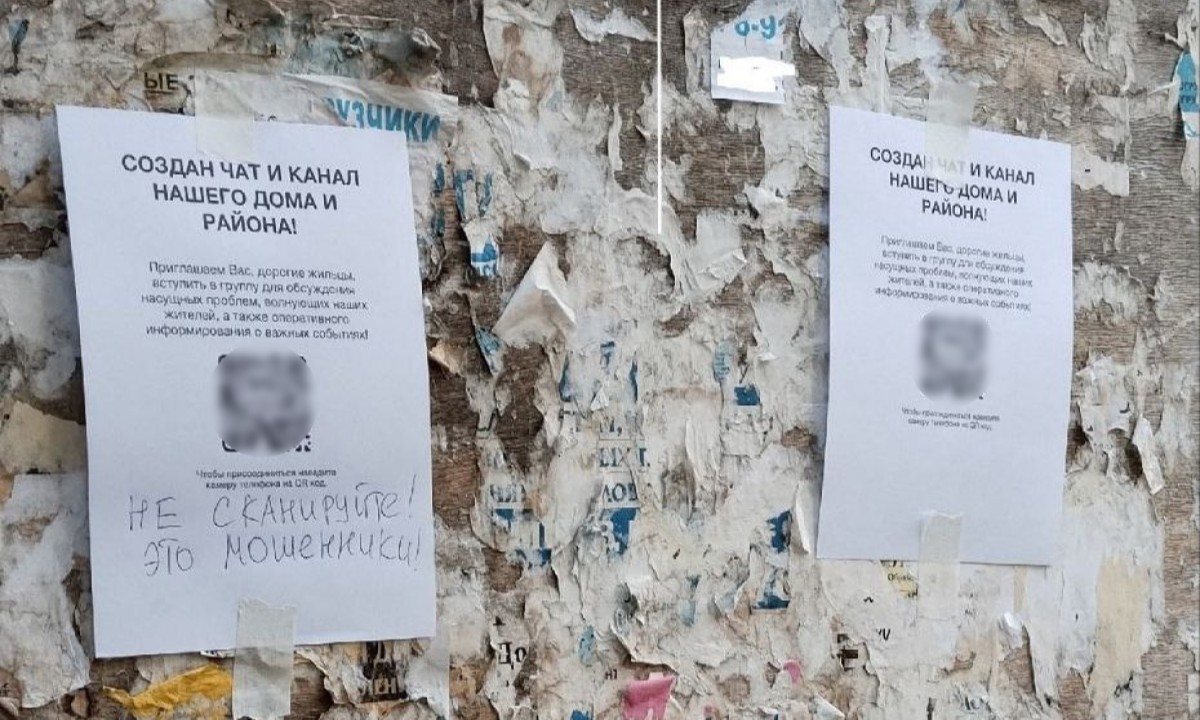 ЫЕ
УЗЧИКИ
СОЗДАН ЧАТ И КАНАЛ
НАШЕГО ДОМА И
РАЙОНА!
Приглашаем Вас, дорогие жильцы,
вступить в группу для обсуждения
насущных проблем, волнующих наших
жителей, а также оперативного
информирования о важных событиях!
Чтобы присоединиться наведите
камеру телефона на QR код.
НЕ СКАНИРУЙТЕ!
ЭТО МОШЕННИКИ!
СОЗДАН ЧАТ И КАНАЛ
НАШЕГО ДОМА И
РАЙОНА!
Приглашаем Вас, дорогие жильцы,
вступить в группу для обсуждения
насущных проблем, волнующих наших
жителей, а также оперативного
информирования о важных событиях!
Чтобы присоединиться наведите
камеру телефона на QR код.